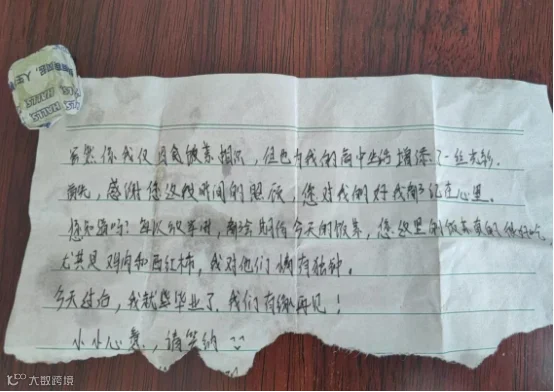 虽然你我仅因食饭菜相识，但已为我的高中生活增添了一丝光彩.
首先，感谢您这段时间的照顾，您对我们的好我都记在心里.
您知道吗？每次放学时，都会期待今天的饭菜，您这里的饭菜真的很好吃
尤其是鸡肉和西红柿，我对他们情有独钟。
今天过后，我就要毕业了，我们有缘再见！
小小心意，请笑纳
HALLS
大数跨境